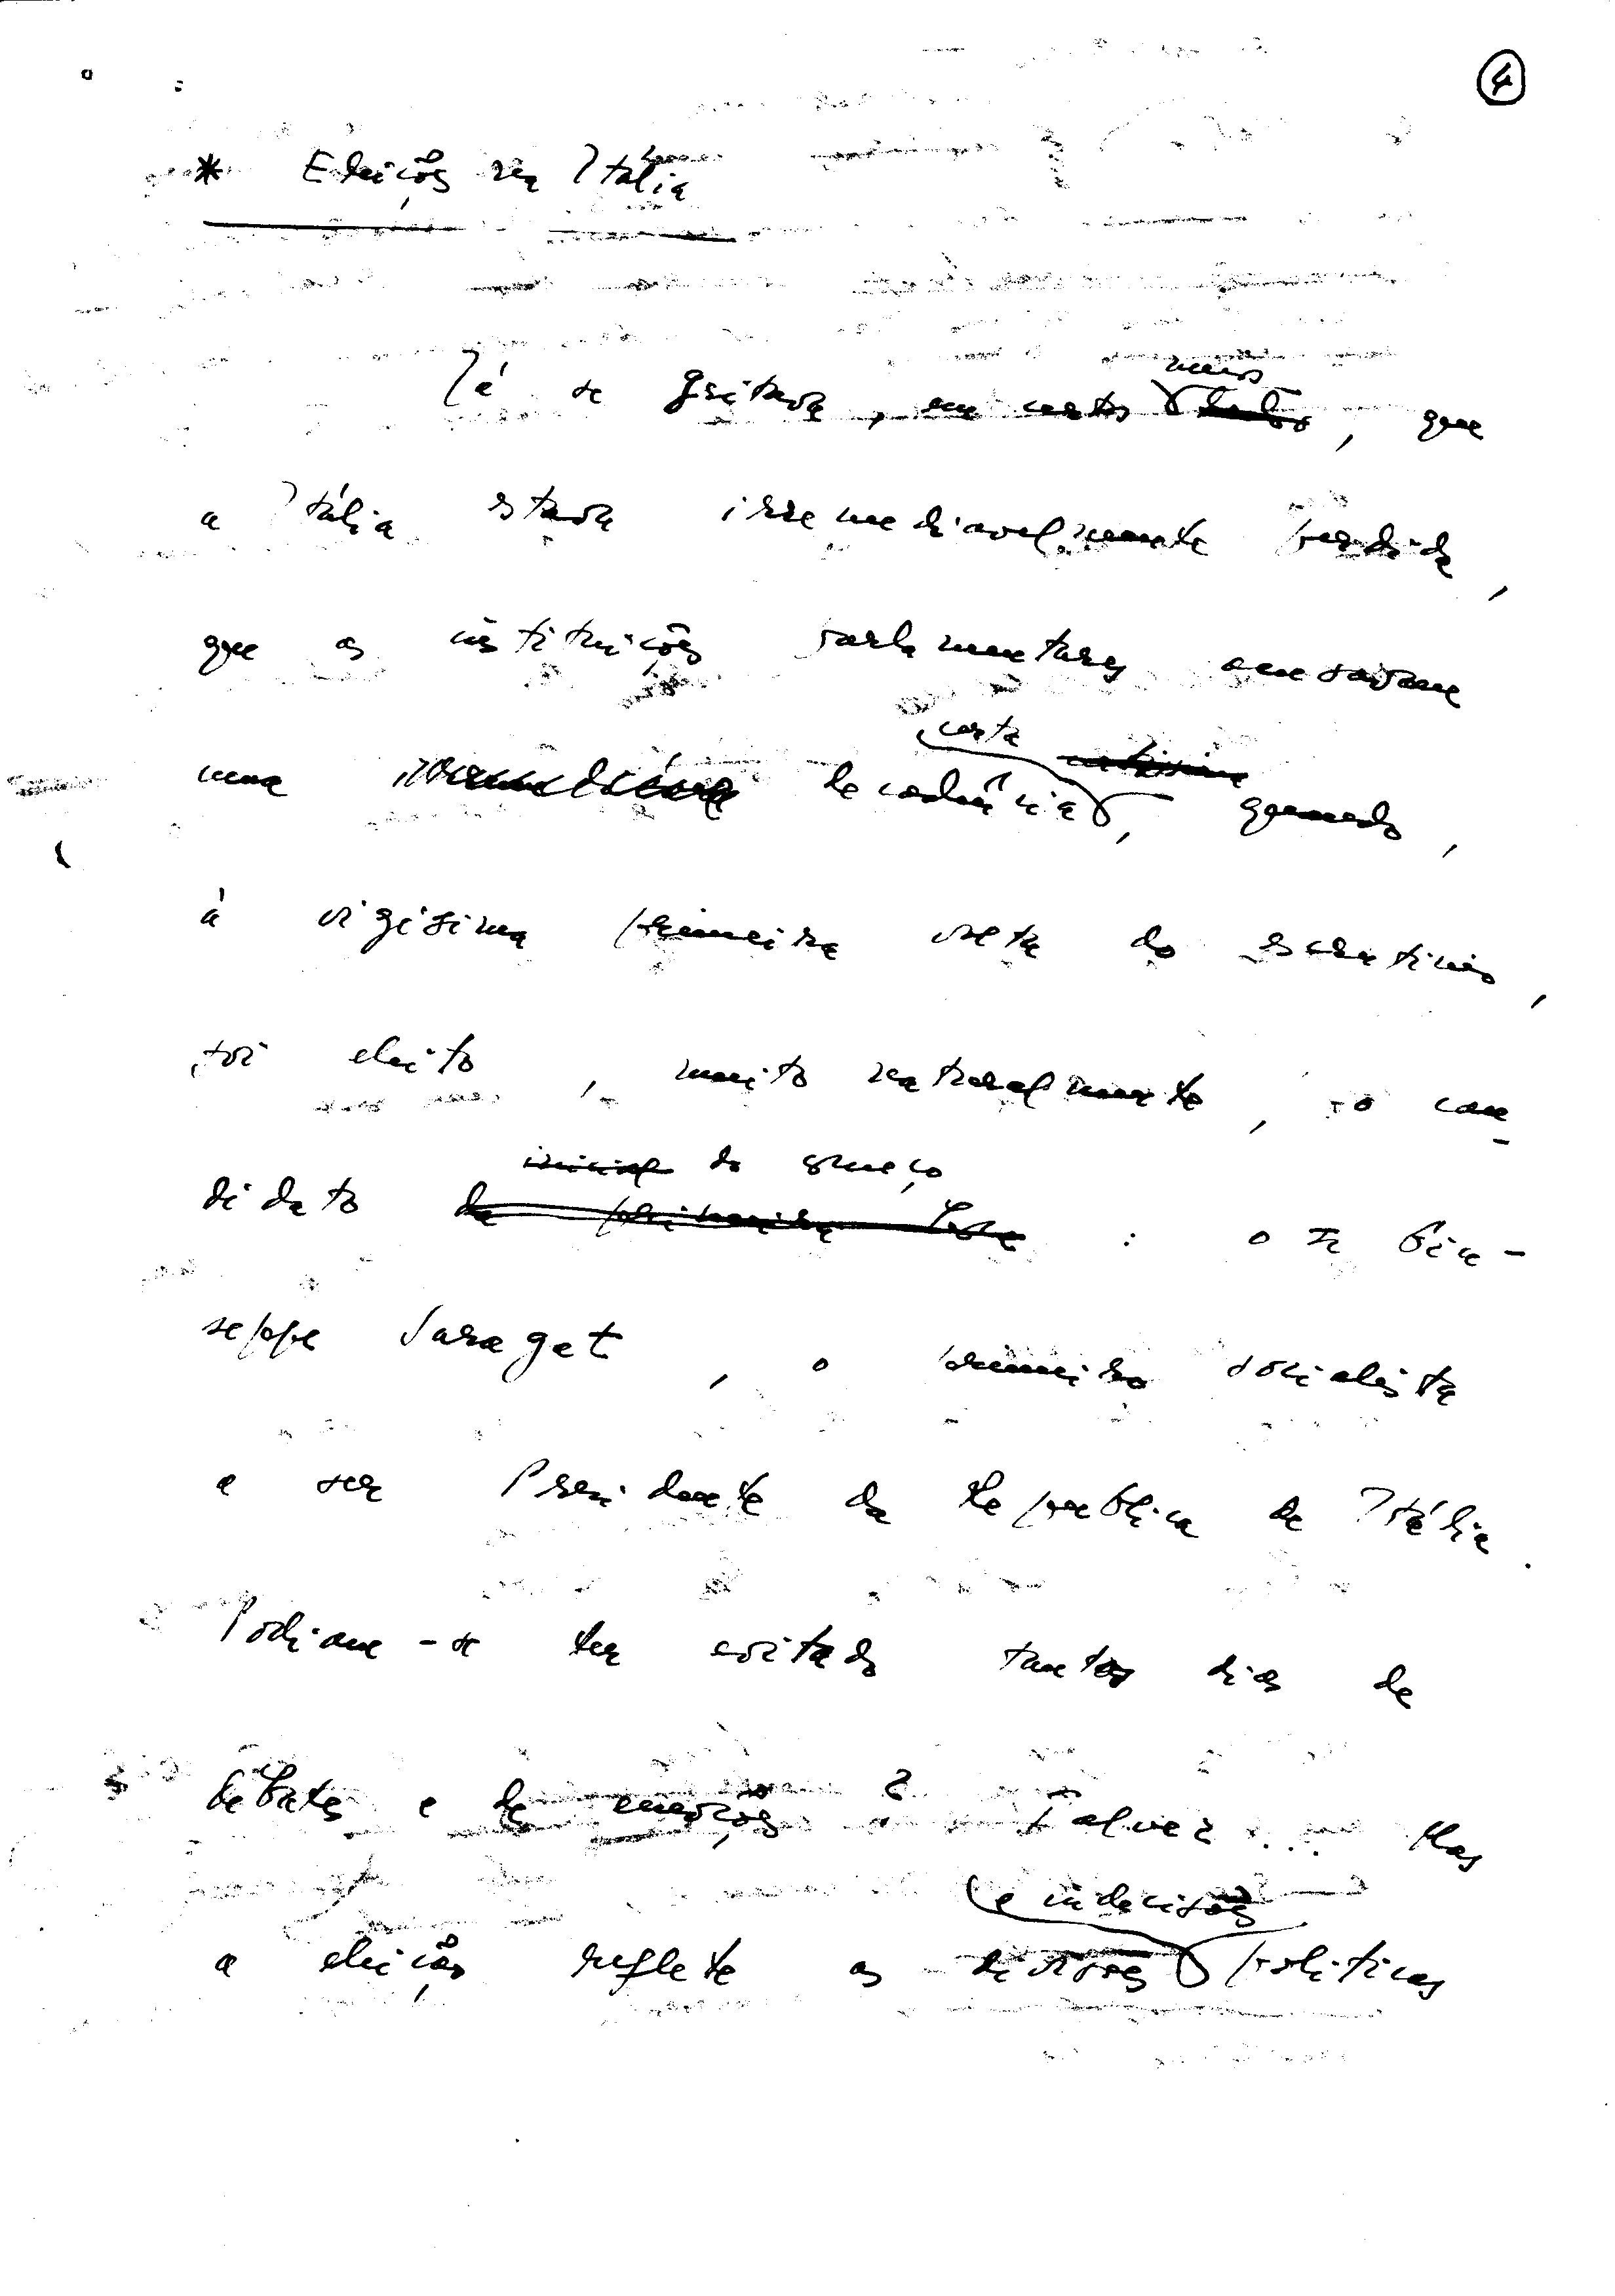 4
* Eleições na Itália
Já se gritava, em certos meios, que
a Itália estava irremediavelmente perdida,
que as instituições parlamentares ameaçavam
uma decadência certa, quando,
à vigésima primeira volta do escrutínio,
foi eleito, muito naturalmente, o can-
didato do começo : o Sr Giu-
seppe Saragat, o primeiro socialista
a ser Presidente da República da Itália.
Podiam-se ter evitado tantos dias de
debates e de emoções? Talvez... Mas
a eleição reflete as divisões e indecisões políticas